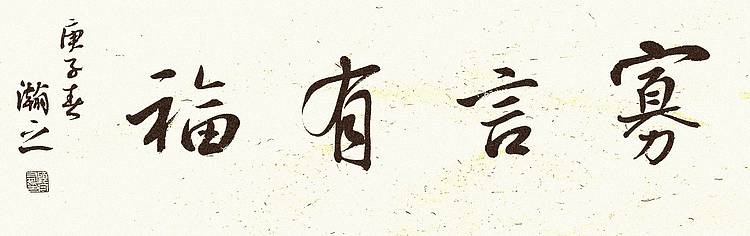 寡言有福
庚子春
瀚之